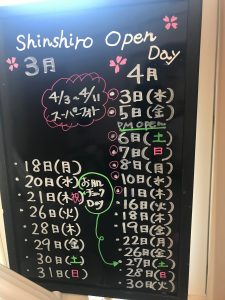 Shinshiro Open Day
3月
4/3~4/11
スーパースト
18日(月)
20日(水)
21日(木)祝
26日(火)
28日(木)
29日(金)
30日(土)
31日(日)
お肌チェックDay
4月
3日(水)
5日(金)
PM OPEN
6日(土)
7日(日)
8日(月)
10日(水)
11日(木)
16日(火)
18日(木)
19日(金)
22日(月)
26日(金)
27日(土)
28日(日)
30日(火)